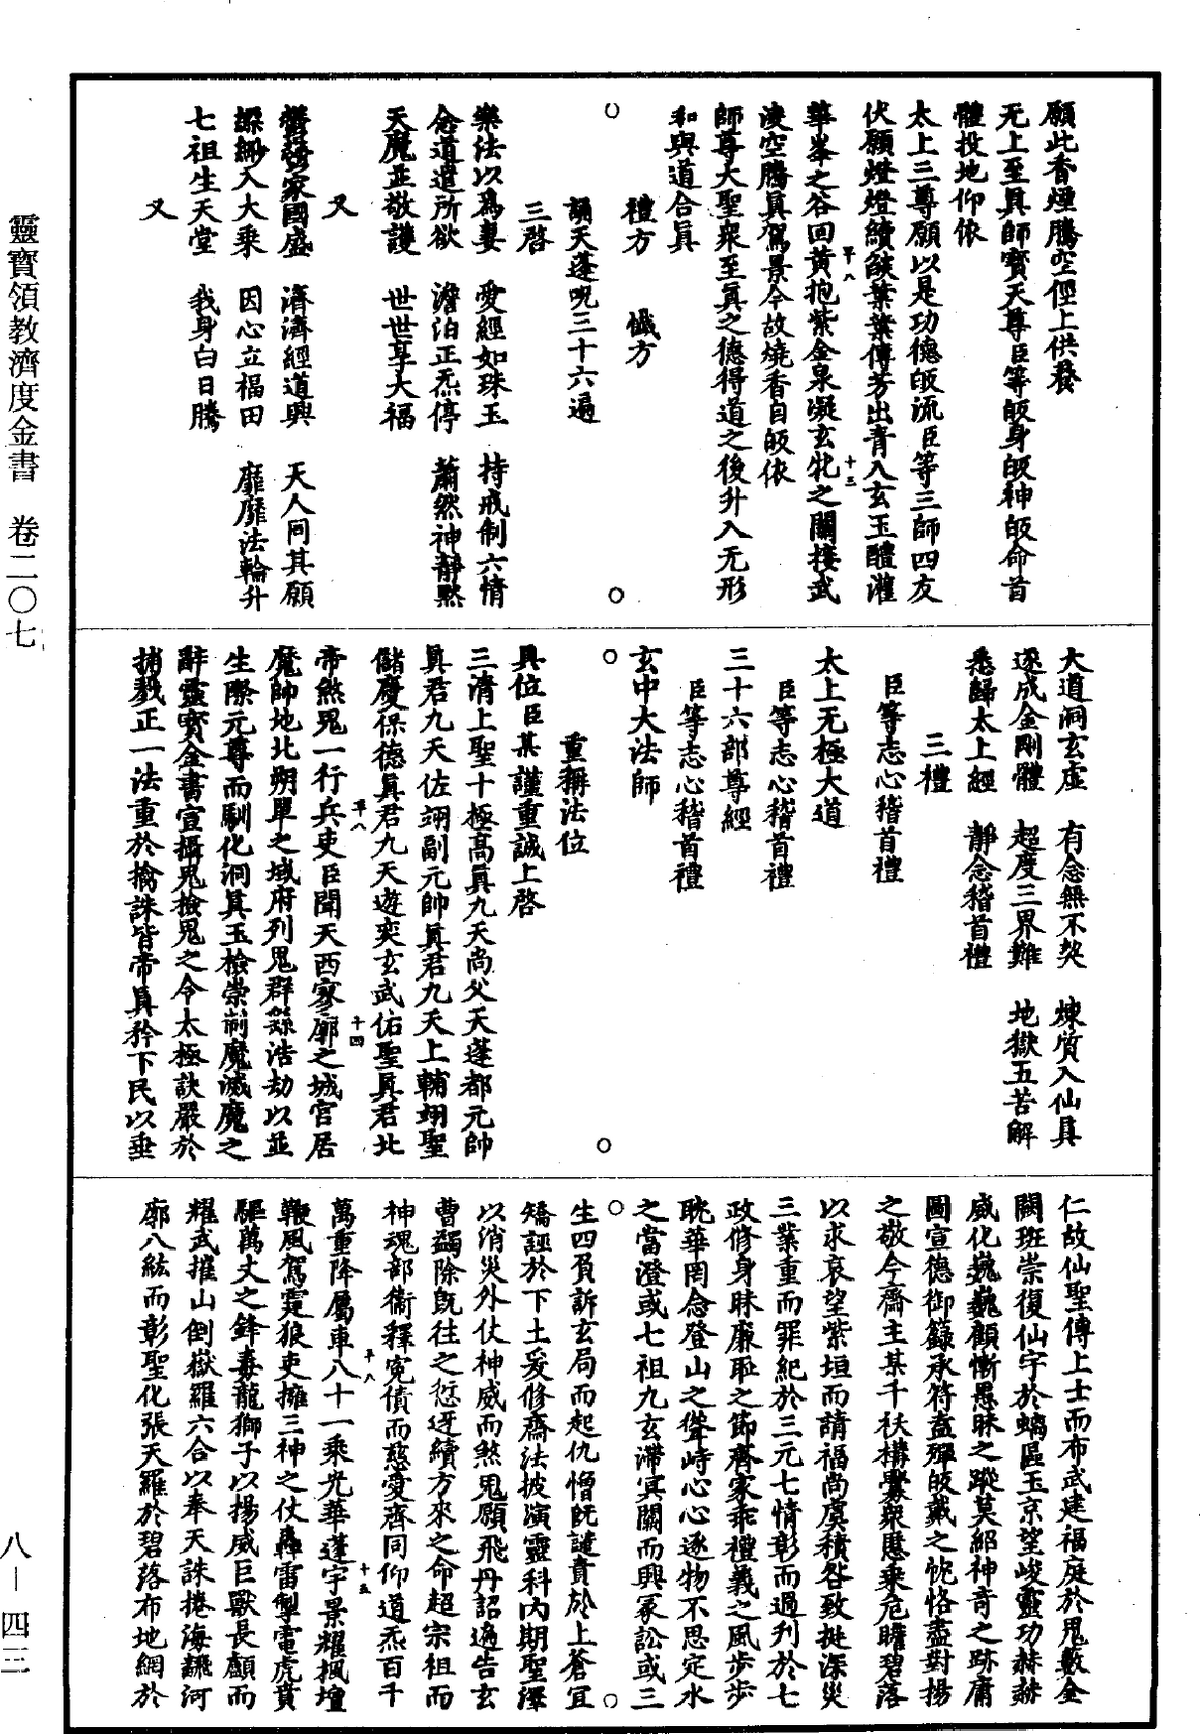 願此香煙騰空徑上供養
无上至真師寶天尊臣等皈身皈神皈命首
體投地仰依
太上三尊願以是功德皈流臣等三師四友
伏願燈燈續燄葉葉傳芳出青入玄玉醴灌
華峯之谷回黃抱紫金泉凝玄牝之關接武
淩空騰真駕景今故燒香自皈依
師尊大聖衆至真之德得道之後升入无形
和與道合真
禮方 懺方
誦天蓬呪三十六遍
三啓
樂法以爲妻 愛經如珠玉 持戒制六情
念道遣所欲 澹泊正炁停 蕭然神靜默
天魔並敬護 世世享大福
又
鬱鬱家國盛 濟濟經道興 天人同其願
縹緲入大乘 因心立福田 靡靡法輪升
七祖生天堂 我身白日騰
又
大道洞玄虛 有念無不契 煉質入仙真
遂成金剛體 超度三界難 地獄五苦解
悉歸太上經 靜念稽首禮
三禮
臣等志心稽首禮
太上无極大道
臣等志心稽首禮
三十六部尊經
臣等志心稽首禮
玄中大法師
重稱法位
具位臣某謹重誠上啓
三清上聖十極高真九天尚父天蓬都元帥
真君九天佐翊副元帥真君九天上輔翊聖
儲慶保德真君九天遊奕玄武佑聖真君北
帝煞鬼一行兵吏臣聞天西寥廓之城官居
魔帥地北朔單之域府列鬼群繇浩劫以並
生際元尊而馴化洞真玉檢崇制魔滅魔之
辭靈寶金書宣攝鬼檢鬼之令太極訣嚴於
捕戮正一法重於擒誅皆帝真矜下民以垂
仁故仙聖傳上士而布武建福庭於鬼數金
闕班崇復仙宇於螭區玉京望峻靈功赫赫
威化巍巍顧慚愚昧之蹤莫紹神奇之跡庸
圖宣德御籙承符益殫皈戴之忱恪盡對揚
之敬今齋主某千祆構釁衆慝乘危瞻碧落
以求哀望紫垣而請福尚虞積咎致挻深災
三業重而罪紀於三元七情彰而過列於七
政修身昧廉恥之節齊家乖禮義之風步步
眺華罔念登山之聳峙心心逐物不思定水
之當澄或七祖九玄滯冥關而興冢訟或三
生四負訴玄局而起仇憎旣譴責於上蒼宜
矯誣於下土爰修齋法披演靈科內期聖澤
以消災外仗神威而煞鬼願飛丹詔遍告玄
曹蠲除旣往之愆迓續方來之命超宗祖而
神魂部衞釋寃債而慈愛齊同仰道炁百千
萬重降屬車八十一乘光華蓬宇景耀楓壇
鞭風駕霆狼吏擁三神之仗轟雷掣電虎賁
驅萬丈之鋒毒龍獅子以揚威巨獸長顱而
耀武摧山倒嶽羅六合以奉天誅捲海飜河
廓八紘而彰聖化張天羅於碧落布地網於
靈寶領教濟度金書 卷二〇七
八—四三